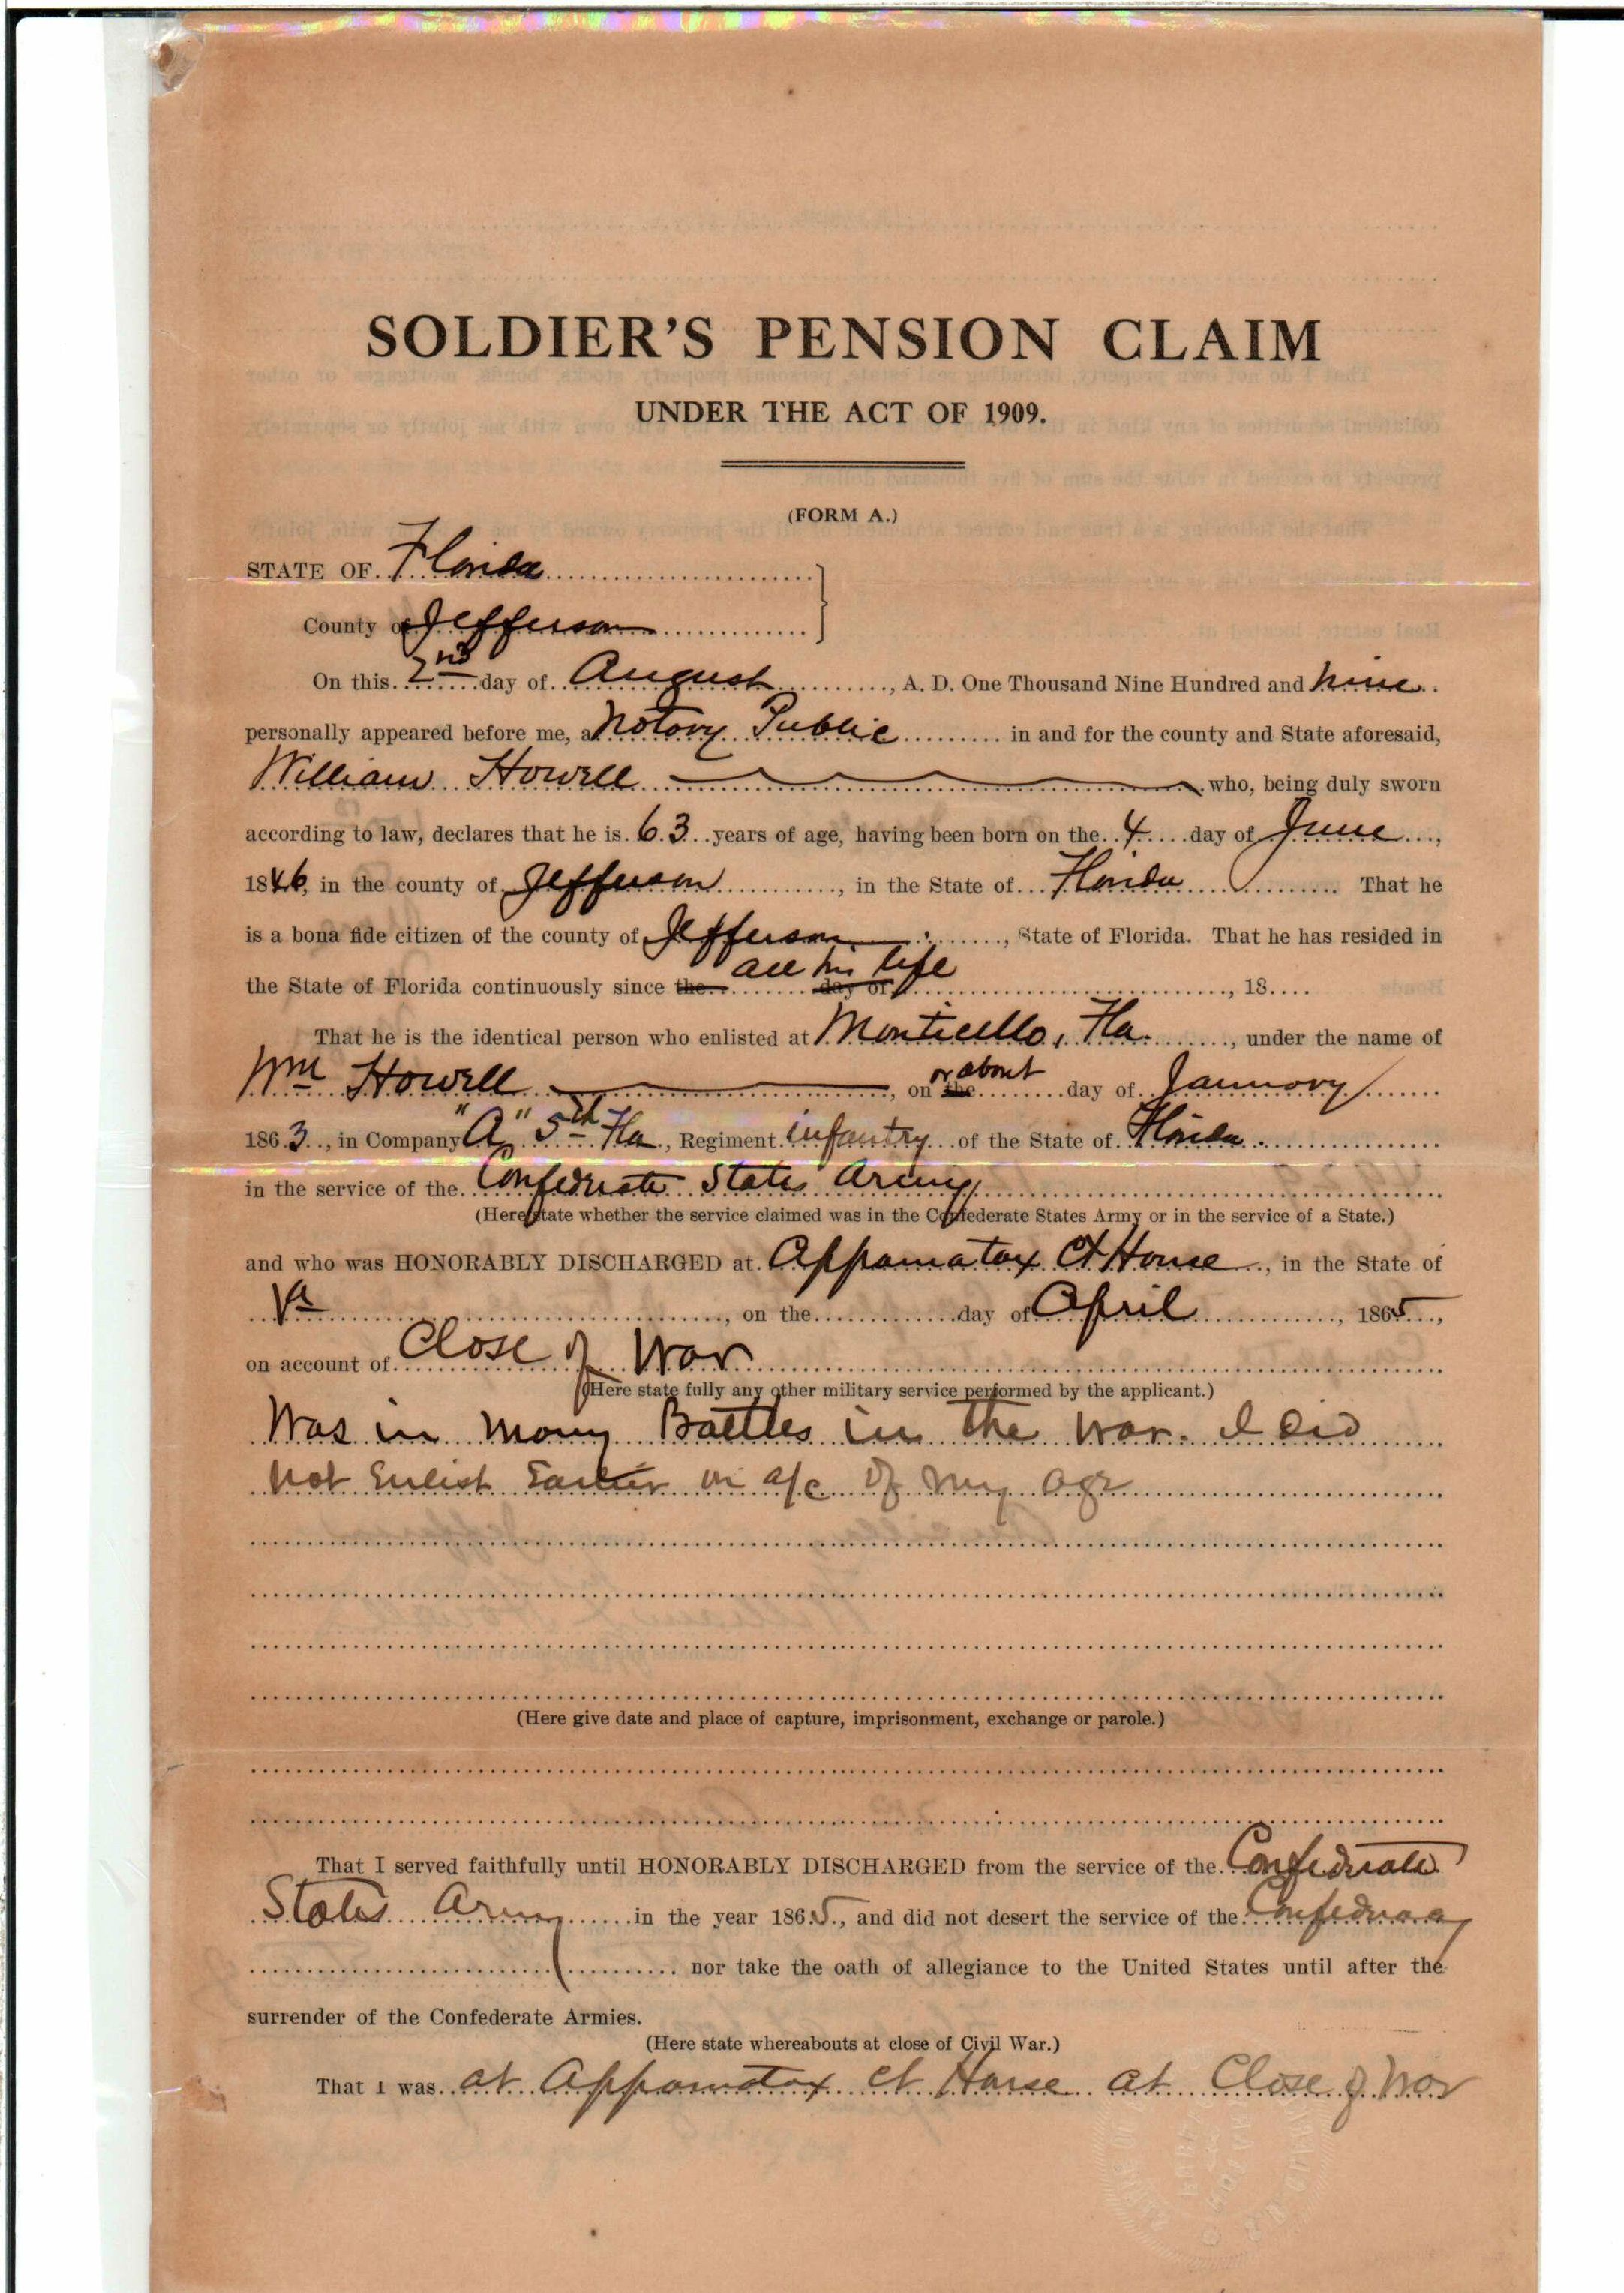 SOLDIER'S PENSION CLAIM
UNDER THE ACT OF 1909.
(FORM A.)
STATE OF Florida
County of Jefferson
On this 2nd day of August, A. D. One Thousand Nine Hundred and nine
personally appeared before me, a Notary Public in and for the county and State aforesaid,
William Howell who, being duly sworn
according to law, declares that he is 63 years of age, having been born on the 4 day of June,
1846, in the county of Jefferson, in the State of Florida That he
is a bona fide citizen of the county of Jefferson, State of Florida. That he has resided in
all his life
the State of Florida continuously since the day of, 18
That he is the identical person who enlisted at Monticello, Fla., under the name of
Wm Howell, on the or about day of January
1863, in Company "A" 5th Fla, Regiment infantry of the State of Florida
in the service of the Confederate States Army
(Here state whether the service claimed was in the Confederate States Army or in the service of a State.)
and who was HONORABLY DISCHARGED at Appamatox Ct House, in the State of
Va, on the day of April, 1865,
on account of Close of War
(Here state fully any other military service performed by the applicant.)
Was in many Battles in the war. I did
not Enlist Earlier on a/c of my age
(Here give date and place of capture, imprisonment, exchange or parole.)
That I served faithfully until HONORABLY DISCHARGED from the service of the Confederate
States Army in the year 1865, and did not desert the service of the Confederacy
nor take the oath of allegiance to the United States until after the
surrender of the Confederate Armies.
(Here state whereabouts at close of Civil War.)
That I was at Appamatox Ct House at Close of War